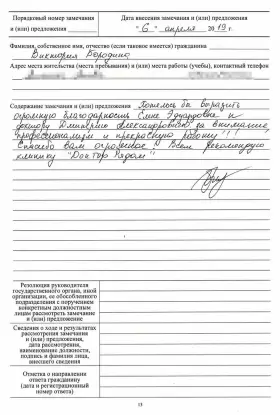 Порядковый номер замечания
и (или) предложения
Дата внесения замечания и (или) предложения
"6" апреля 2019 г.
Фамилия, собственное имя, отчество (если таковое имеется) гражданина
Виктория Бородина
Адрес места жительства (места пребывания) и (или) места работы (учебы), контактный телефон
Содержание замечания и (или) предложения Хотелось бы выразить
огромную благодарность Елне Эдуардовне и
доктору Дмитрию Александровичу за внимание,
профессионализм и прекрасную работу!!!
Спасибо вам огромное! Всем рекомендую
клинику "Доктор Рядом".
Резолюция руководителя
государственного органа, иной
организации, ее обособленного
подразделения с поручением
конкретным должностным
лицам рассмотреть замечание
и (или) предложение
Сведения о ходе и результатах
рассмотрения замечания
и (или) предложения,
дата рассмотрения,
наименование должности,
подпись и фамилия лица,
внесшего сведения
Отметка о направлении
ответа гражданину
(дата и регистрационный
номер ответа)
13